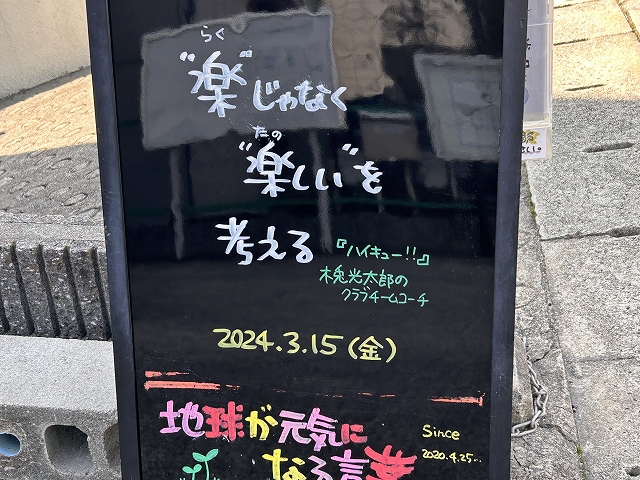 らく
"楽"じゃなく
たの
"楽しい"を
考える
『ハイキュー!!』
木兎光太郎の
クラブチームコーチ
2024.3.15(金)
地球が元気に
なる言葉
Since
2020.4.25...